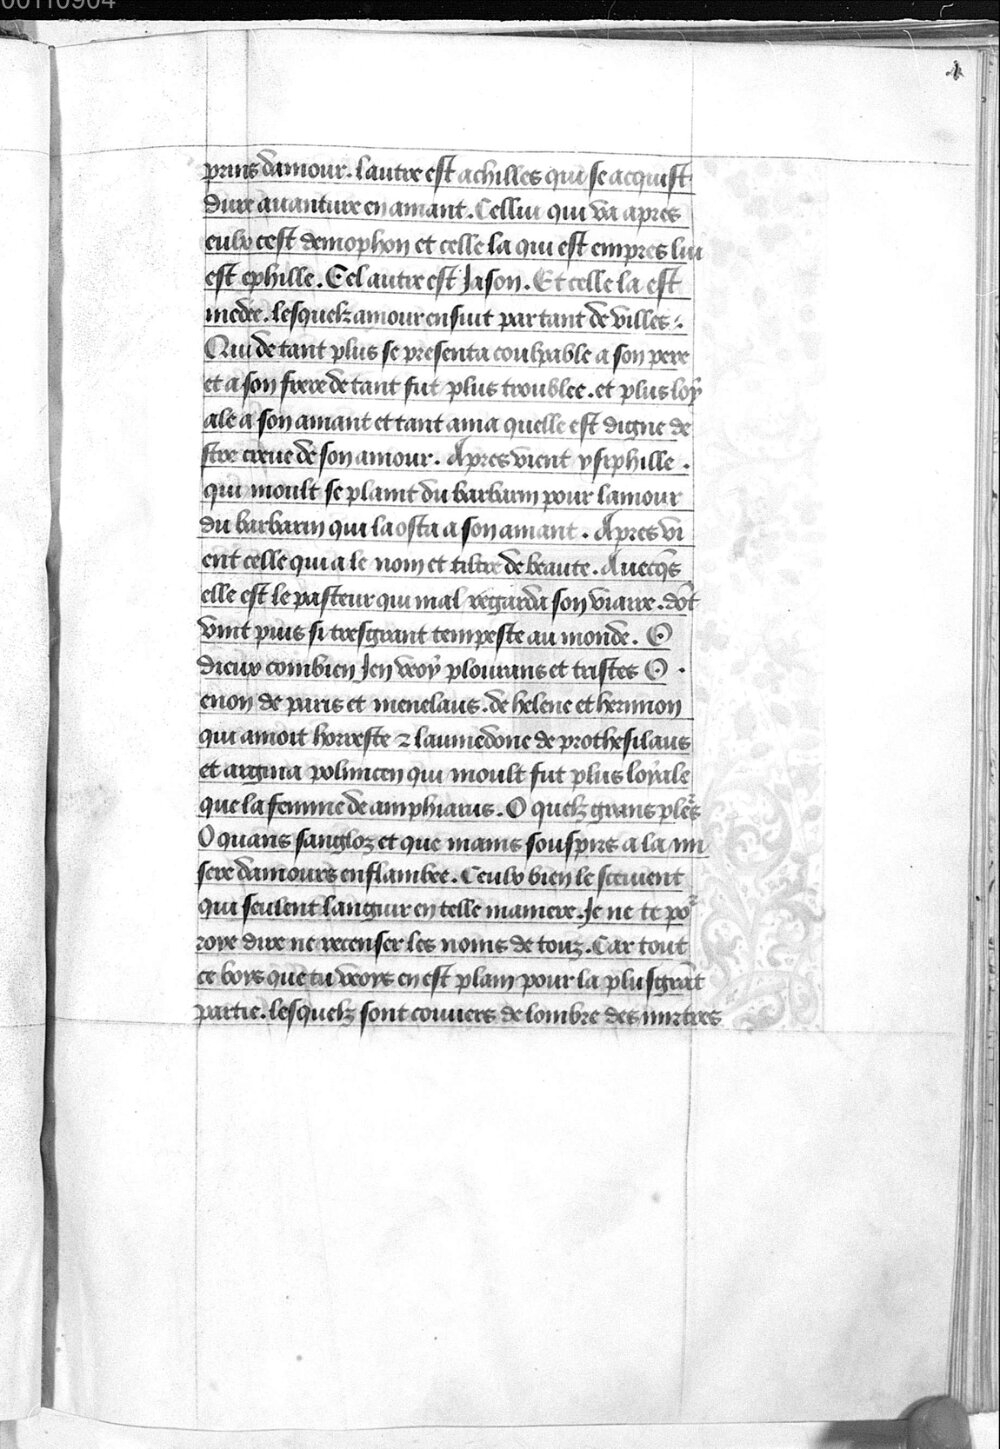 00110904
4
prins damour. lautre est achilles qui se acquist
dure auanture en amant. Cellui qui va apres
eulx cest demophon et celle la qui est empres lui
est ephille. Cel autre est Jason. Et celle la est
medee. lesquelz amour ensuit par tant de villes
Qui de tant plus se presenta coulpable a son pere
et a son frere de tant fut plus troublee. et plus loy
ale a son amant et tant ama quelle est digne de
stre creue de son amour. Apres vient ysiphille.
qui moult se plaint du barbarin pour lamour
du barbarin qui la osta a son amant. Apres vi
ent celle qui a le nom et tiltre de beaute. Auecqs
elle est le pasteur qui mal regarda son viarre. dōt
vint puis si tresgrant tempeste au monde. O
dieux combien Jen veoy plourans et tristes O.
enon de paris et menelaus. de helene et hermion
qui amoit horreste ⁊ laumedone de prothesilaus
et argina polinicen qui moult fut plus loyale
que la femme de amphiarus. O quelz grans plēs
O quans sangloz et que mains souspirs a la mi
sere damours enflambee. Ceulx bien le sceuient
qui seulent languir en telle maniere. Je ne te po
roye dire ne recenser les noms de touz. Car tout
ce boys que tu veoys en est plain pour la plus grāt
partie. lesquelz sont couuers de lombre des mirtres